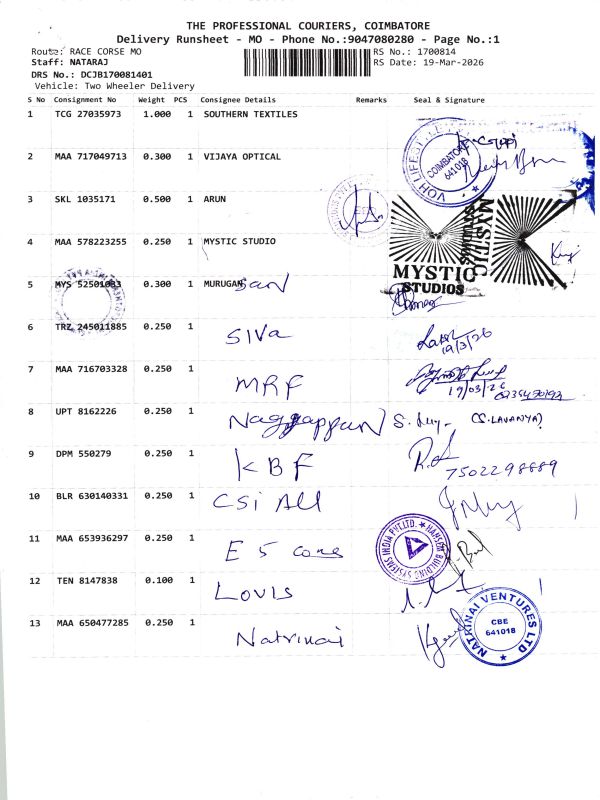 THE PROFESSIONAL COURIERS, COIMBATORE
Delivery Runsheet - MO - Phone No.:9047080280 - Page No.:1
Route: RACE CORSE MO
RS No.: 1700814
Staff: NATARAJ
RS Date: 19-Mar-2026
DRS No.: DCJB170081401
Vehicle: Two Wheeler Delivery
S No Consignment No Weight PCS Consignee Details Remarks Seal & Signature
1 TCG 27035973 1.000 1 SOUTHERN TEXTILES
COIMBATORE 641018
2 MAA 717049713 0.300 1 VIJAYA OPTICAL
3 SKL 1035171 0.500 1 ARUN
4 MAA 578223255 0.250 1 MYSTIC STUDIO
MYSTIC STUDIOS
MYSTIC
STUDIOS
5 MYS 52501083 0.300 1 MURUGAN
6 TRZ 245011885 0.250 1 Siva
19/3/26
7 MAA 716703328 0.250 1 MRF
19/03/26
8 UPT 8162226 0.250 1 Naggappan (S.LAVANYA)
9 DPM 550279 0.250 1 KBF
7502298889
10 BLR 630140331 0.250 1 CSi All
11 MAA 653936297 0.250 1 E 5 cons
HANSON BUILDING SYSTEMS INDIA PVT.LTD.
12 TEN 8147838 0.100 1 Louis
13 MAA 650477285 0.250 1 Natrinai
NATRINAI VENTURES LTD
CBE
641018